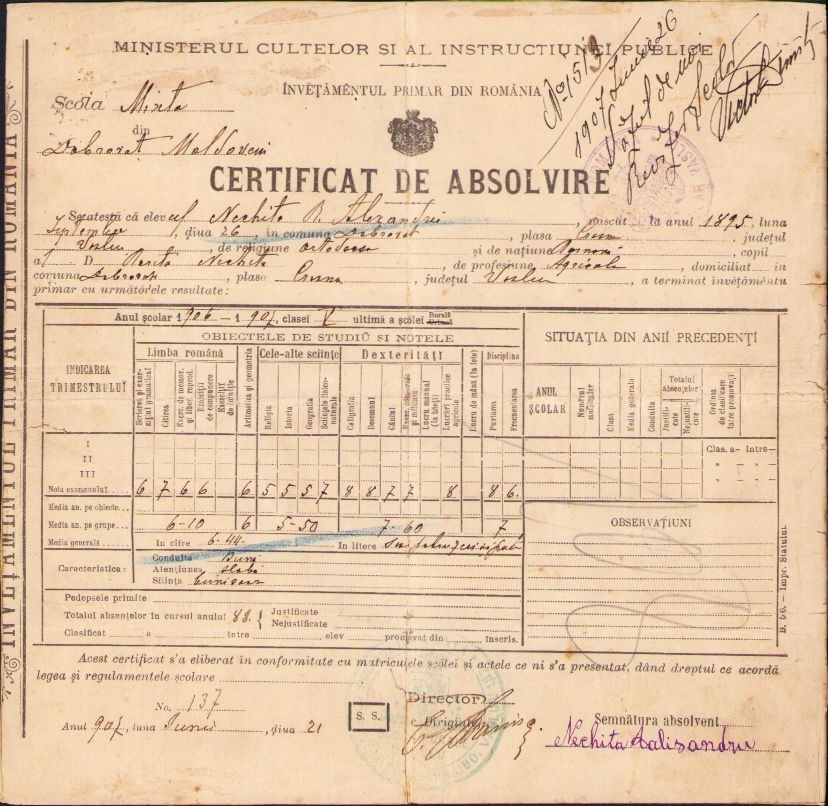 MINISTERUL CULTELOR SI AL INSTRUCTIUNEI PUBLICE
ÎNVĔTĂMÊNTUL PRIMAR DIN ROMÂNIA
No. 1513
1907 Iunie 26
Văzut de noi
Revizor Școlar
Școla Mixta
din
Dobrovat Moldoveni
CERTIFICAT DE ABSOLVIRE
Se atestă că elevul Nechita P. Alexandru, născut la anul 1895, luna
Septembre, diua 26, în comuna Dobrovat, plasa Crasna, județul
Vaslui, de religiune ortodoxa și de națiune Romana, copil
al D. Nechita, de profesiune Agricola, domiciliat in
comuna Dobrovat, plasa Crasna, județul Vaslui, a terminat învĕtămêntu
primar cu următórele resultate:
Anul școlar 1906 — 1907, clasei V ultimă a școlei Rurală Urbană
INDICAREA TRIMESTRULUI
OBIECTELE DE STUDIŬ SI NOTELE
SITUAȚIA DIN ANII PRECEDENȚI
Limba română
Cele-alte sciințe
Dexterități
Disciplina
Citirea
Aritmetica și geometria
Religia
Istoria
Geografia
Sciințele fisico-naturale
Caligrafia
Desemnul
Cântul
Lucru manual
Lucrări practice agricole
Lucru de mână (la fete)
Purtarea
Frecuentarea
ANUL ȘCOLAR
Numărul matricular
Clasa
Media generală
Conduita
Totalul absențelor
Ordinea de clasificare între promovați
Clas. a- Intre-
I
II
III
Nota examenului 6 7 6 6 6 5 5 5 7 8 8 7 7 8 8 6
Media an. pe obiecte
Media an. pe grupe 6-10 6 5-50 7-60 7
Media generală In cifre 6-44. In litere
OBSERVAȚIUNI
Caracteristica:
Conduita Bună
Atențiunea slaba
Sființa
Pedepsele primite
Totalul absențelor în cursul anului 88. Justificate
Nejustificate
Clasificat a între elev promovat din înscris.
Acest certificat s'a eliberat în conformitate cu matriculele școlei și actele ce ni s'a presentat, dând dreptul ce acordă
legea și regulamentele școlare
No. 137
Anul 907, luna Iunie, diua 21
S. S.
Director
Diriginte
Semnătura absolvent
Nechita Aalisandru
INVEȚAMENTUL PRIMAR DIN ROMANIA
B. 56. — Impr. Statului.